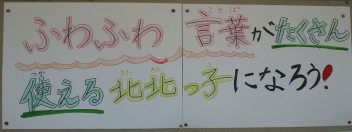 ふわふわ言葉がたくさん
使える北北っ子になろう!